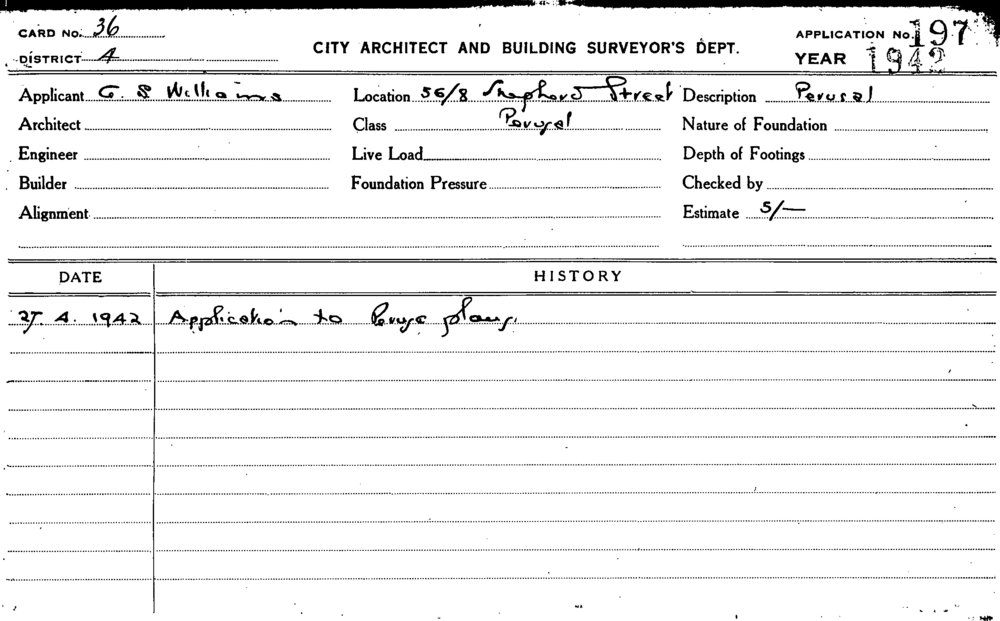 CARD No. 36
DISTRICT 4
CITY ARCHITECT AND BUILDING SURVEYOR'S DEPT.
APPLICATION No. 197
YEAR 1942
Applicant G. S Williams Location 56/8 Shepherd Street Description Perusal
Architect Class Perusal Nature of Foundation
Engineer Live Load Depth of Footings
Builder Foundation Pressure Checked by
Alignment Estimate 5/-
DATE HISTORY
27. 4. 1942 Application to Peruse plans.